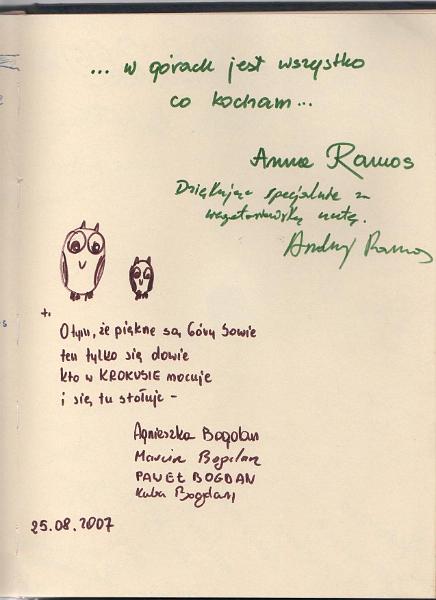 ... w górach jest wszystko
co kocham...
Anna Ramos
Dziękując specjalnie za
nutę.
Andrzej Ramos
O tym, że piękne są Góry Sowie
ten tylko się dowie
kto w KROKUSIE nocuje
i się tu stołuje -
Agnieszka Bogdan
Marcin Bogdan
PAWEŁ BOGDAN
Kuba Bogdan
25.08.2007